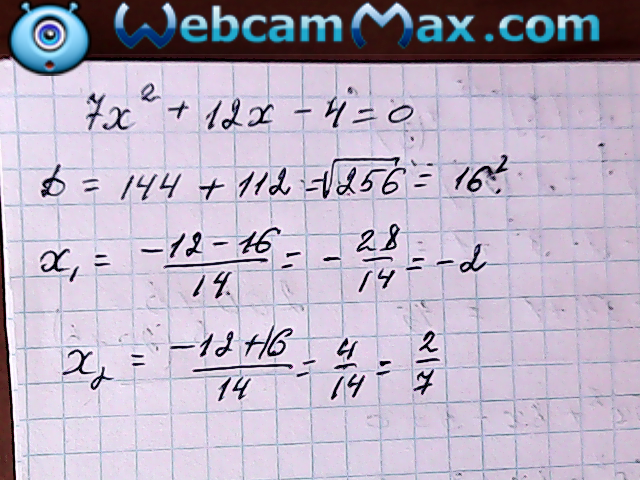 WebcamMax.com
7x² + 12x - 4 = 0
D = 144 + 112 = √256 = 16².
x₁ = (-12 - 16)/14 = - 28/14 = -2
x₂ = (-12 + 16)/14 = 4/14 = 2/7